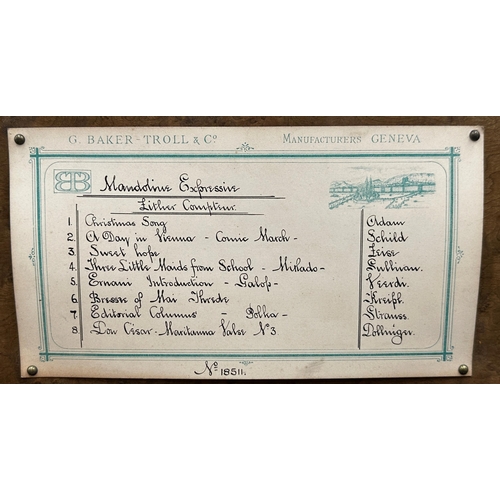 G. BAKER-TROLL & Cº MANUFACTURERS GENEVA
BTB Mandoline Expressive
Zither Compteur.
1. Christmas Song Adam
2. A Day in Vienna - Comic March - Schild
3 Sweet hope
4. Three Little Maids from School - Mikado - Sullivan.
5. Ernani Introduction - Galop - Veerdi.
6. Bresse of Mai Threde
7. Editorial Columns - Polka - Strauss.
8. Don César - Maritanna Valse Nº3 Dollinger.
Nº 18511.